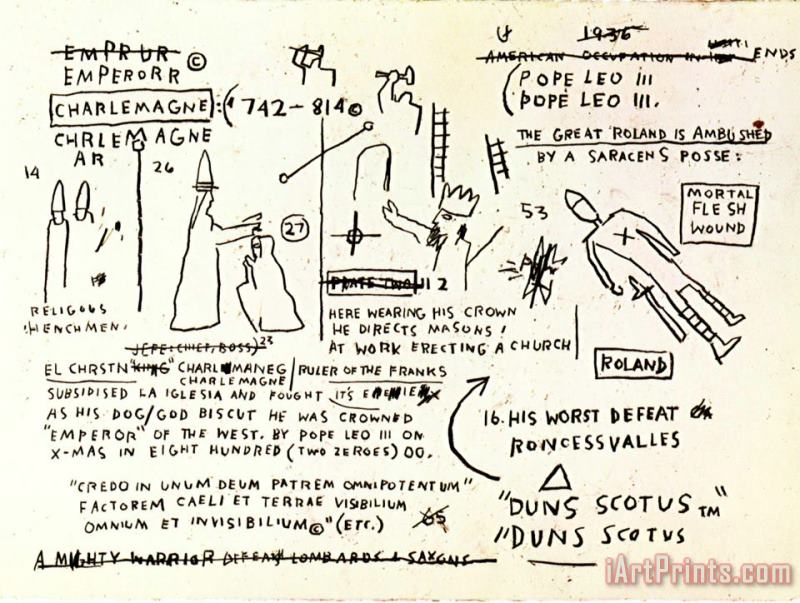 EMPRUR ©
EMPERORR
CHARLEMAGNE : ( 742-814 ©
CHRLEMAGNE
AR
1936
AMERICAN OCCUPATION IN ENDS
( POPE LEO iii
POPE LEO III.
THE GREAT ROLAND IS AMBUSHED
BY A SARACENS POSSE:
14
26
27
53
MORTAL
FLESH
WOUND
PLATE TWO 112
HERE WEARING HIS CROWN
HE DIRECTS MASONS
AT WORK ERECTING A CHURCH
RELIGOUS
HENCHMEN.
JEFE: CHIEF, BOSS) 23
EL CHRSTN "KING" CHARLMANEG / RULER OF THE FRANKS
CHARLEMAGNE
SUBSIDISED LA IGLESIA AND FOUGHT IT'S ENEMIES
AS HIS DOG/GOD BISCUT HE WAS CROWNED
"EMPEROR" OF THE WEST. BY POPE LEO III ON
X-MAS IN EIGHT HUNDRED (TWO ZEROES) 00.
ROLAND
16. HIS WORST DEFEAT
RONCESSVALLES
"CREDO IN UNUM DEUM PATREM OMNIPOTENTUM"
FACTOREM CAELI ET TERRAE VISIBILIUM
OMNIUM ET INVISIBILIUM©" (ETC.) 65
"DUNS SCOTUS TM"
"DUNS SCOTUS
A MIGHTY WARRIOR DEFEAT LOMBARDS & SAXONS
iArtPrints.com